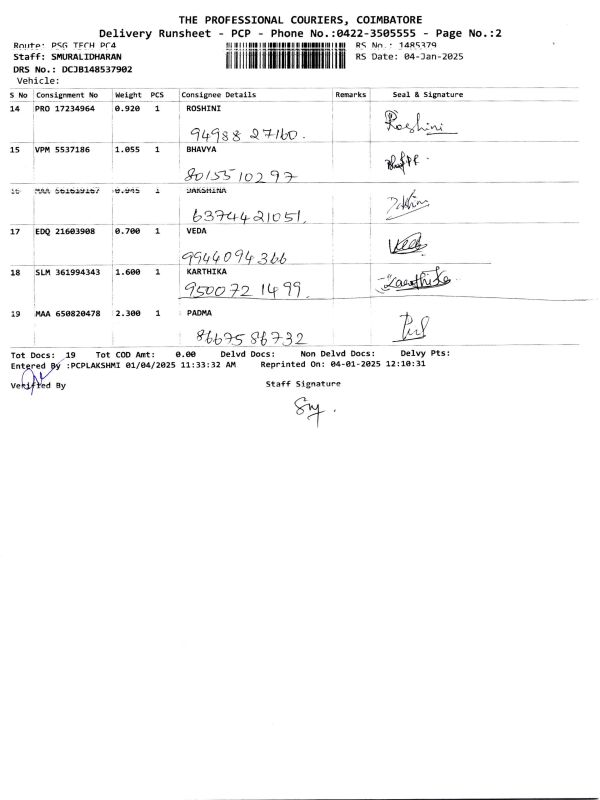 THE PROFESSIONAL COURIERS, COIMBATORE
Delivery Runsheet - PCP - Phone No.:0422-3505555 - Page No.:2
Route: PSG TECH PC4 RS No.: 1485379
Staff: SMURALIDHARAN RS Date: 04-Jan-2025
DRS No.: DCJB148537902
Vehicle:
S No Consignment No Weight PCS Consignee Details Remarks Seal & Signature
14 PRO 17234964 0.920 1 ROSHINI
94988 27160. Roshini
15 VPM 5537186 1.055 1 BHAVYA
8015510297
16 MAA 561619167 0.945 1 DAKSHINA
6374421051.
17 EDQ 21603908 0.700 1 VEDA
9944094366 Veda
18 SLM 361994343 1.600 1 KARTHIKA
9500721499. Karthika
19 MAA 650820478 2.300 1 PADMA
8667586732
Tot Docs: 19 Tot COD Amt: 0.00 Delvd Docs: Non Delvd Docs: Delvy Pts:
Entered By :PCPLAKSHMI 01/04/2025 11:33:32 AM Reprinted On: 04-01-2025 12:10:31
Verified By Staff Signature